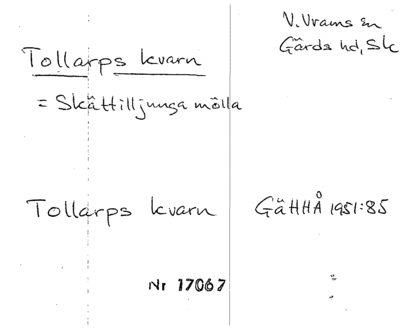 V. Vrams sn
Gärds hd, Sk
Tollarps kvarn
= Skättilljunga mölla
Tollarps kvarn GäHHÅ 1951:85
Nr 17067